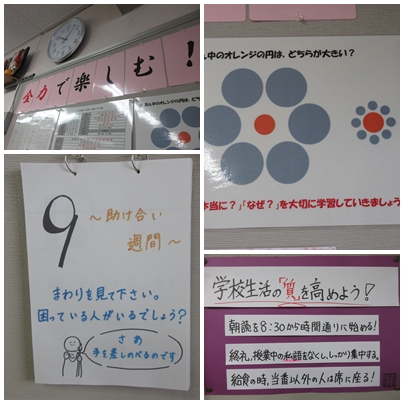 全力で楽しむ!
ん中のオレンジの円は、どちらが大きい?
本当に?」「なぜ?」を大切に学習していきましょう
9
～助け合い
週間～
まわりを見て下さい。
困っている人がいるでしょう?
さあ
手を差しのべるのです
学校生活の「質」を高めよう!
朝読を8:30から時間通りに始める!
終礼、授業中の私語をなくし、しっかり集中する。
給食の時、当番以外の人は席に座る!